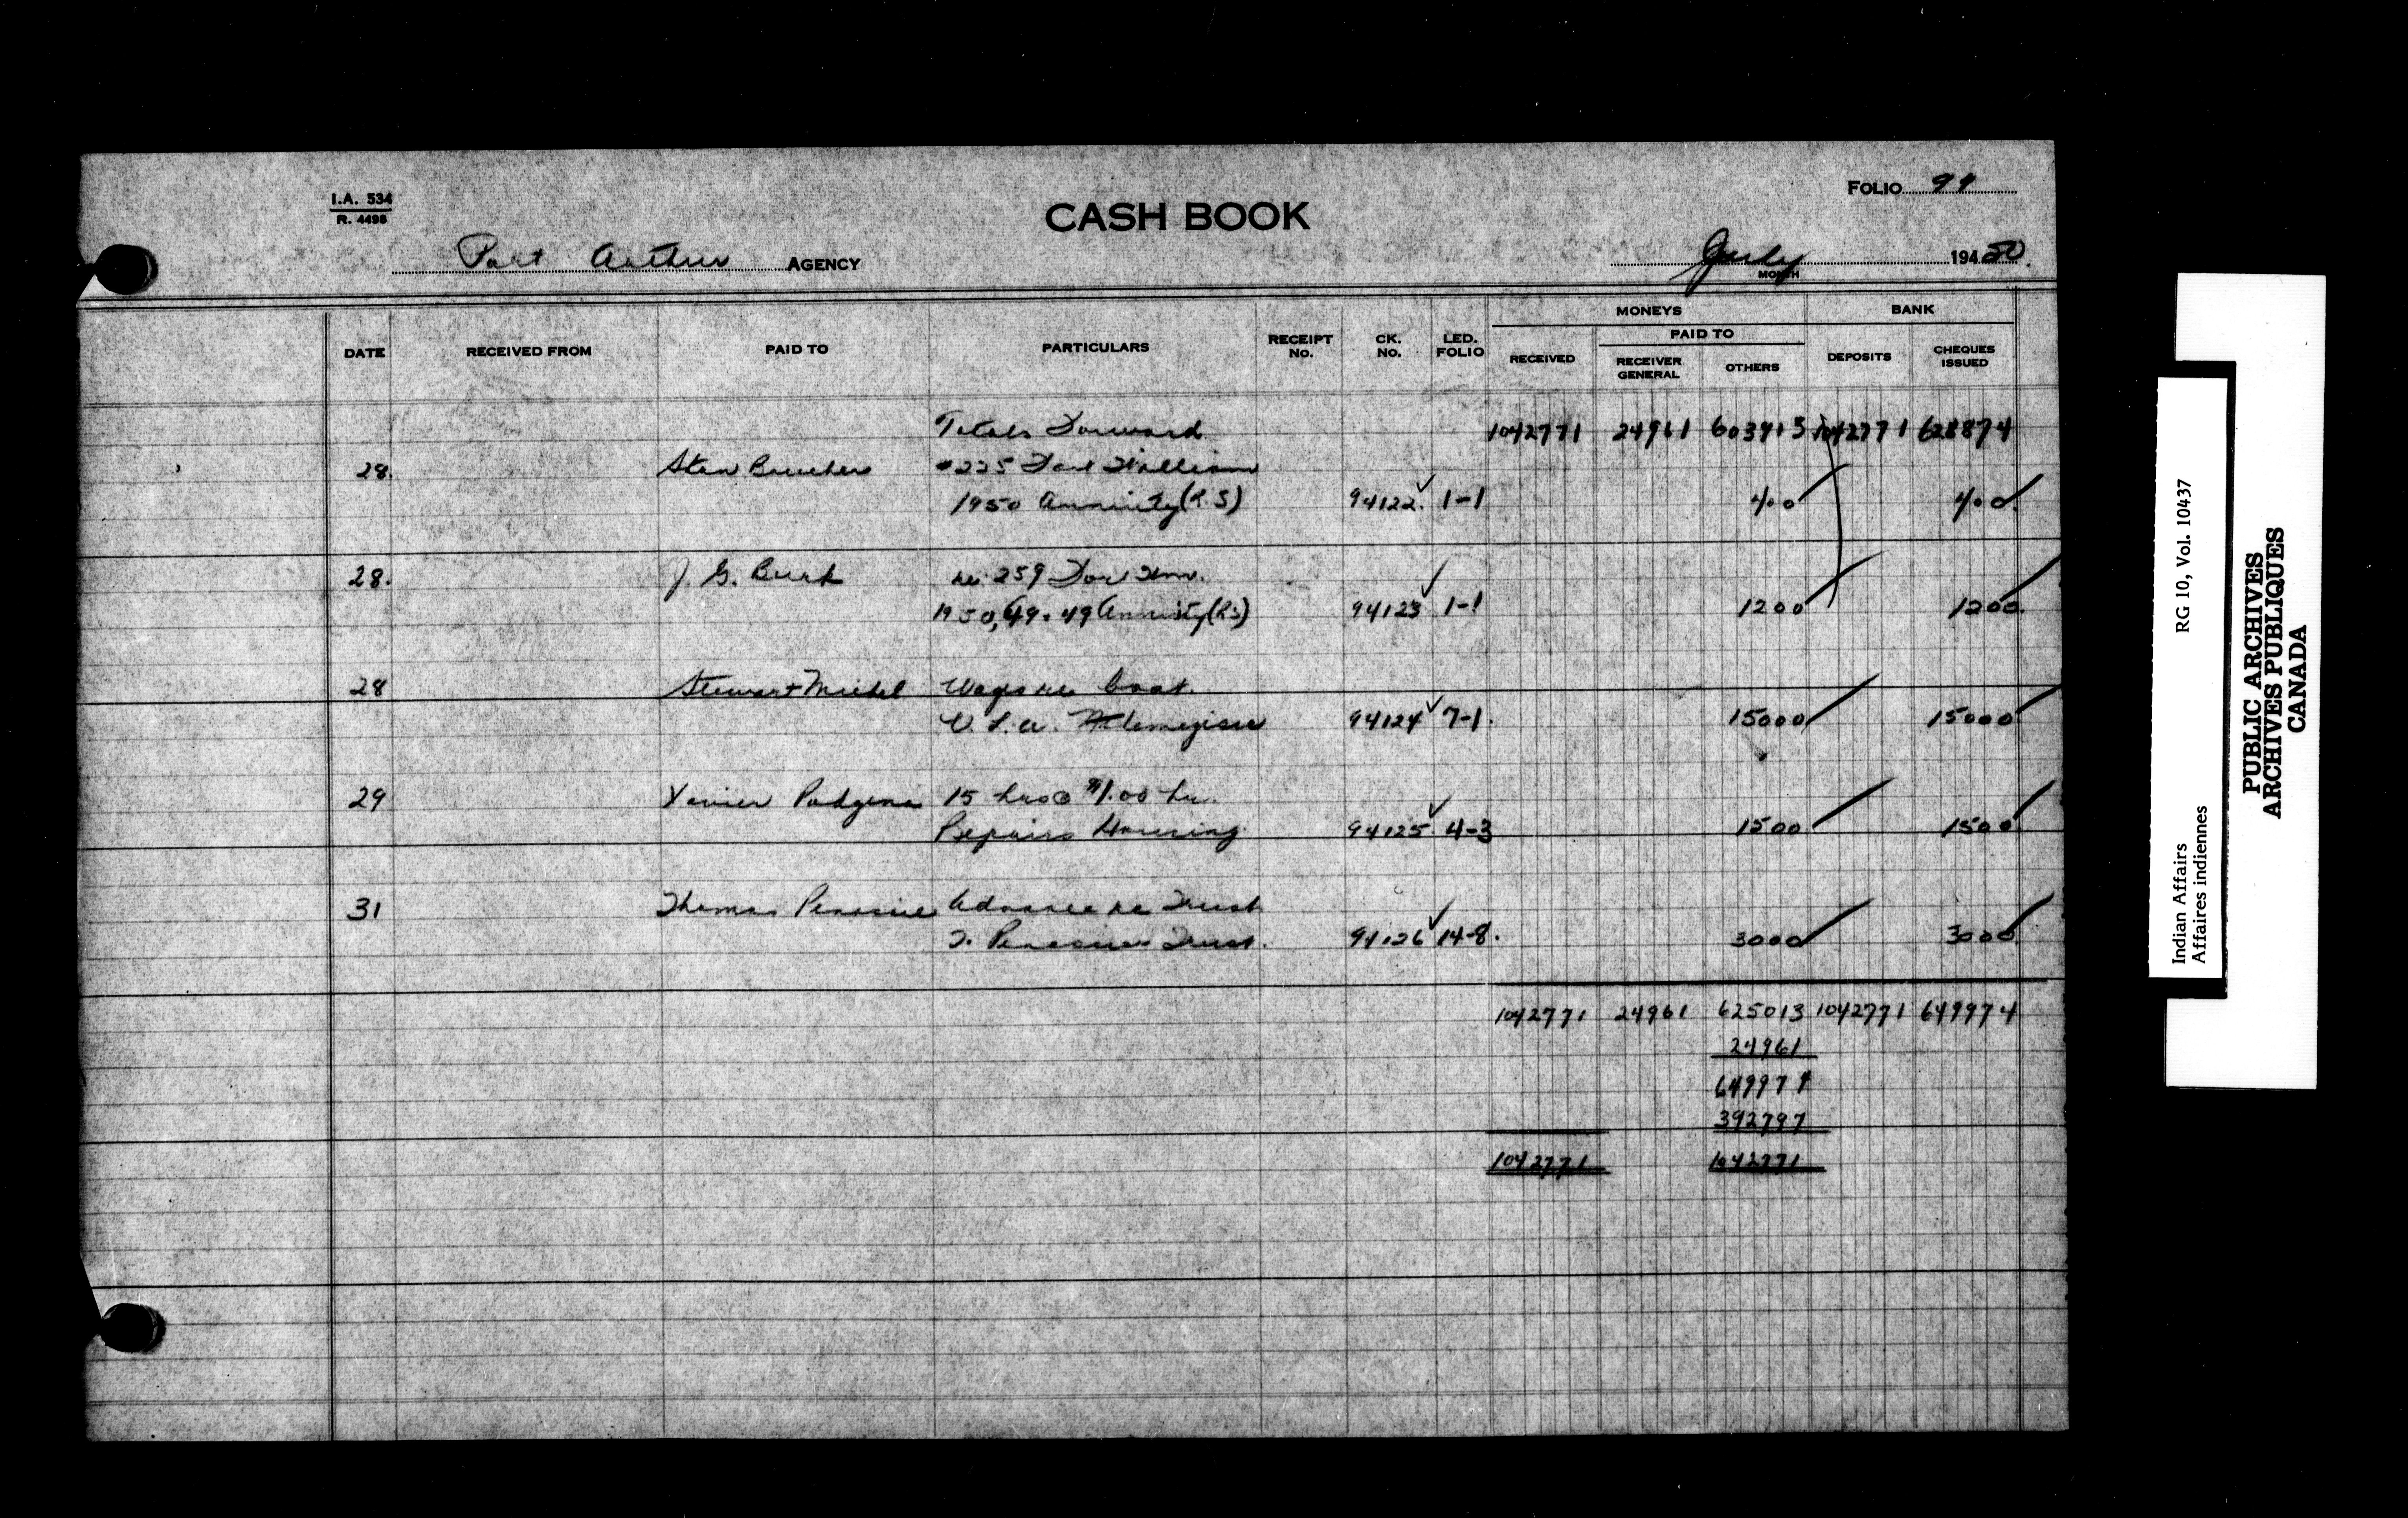 I.A. 534
R. 4498
CASH BOOK
FOLIO 94
Port Arthur AGENCY
July 194 50
MONTH
MONEYS BANK
PAID TO
DATE RECEIVED FROM PAID TO PARTICULARS RECEIPT No. CK. No. LED. FOLIO RECEIVED RECEIVER GENERAL OTHERS DEPOSITS CHEQUES ISSUED
Totals Forward 1042771 24961 603913 1042771 628874
28. Stan Boucher #225 Fort William
1950 Annuity (R.S) 94122. 1-1 400 400
28. J. G. Burk No. 259 Fort Wm.
1950, 49. 49 Annuity (RS) 94123 1-1 1200 1200
28 Stewart Michel Wages re boat
94124 7-1. 15000 15000
29 Xavier 15 hrs @ $1.00 hr.
Repairs Housing 94125. 4-3 1500 1500
31 Thomas Advance re Trust
T. Trust. 94126 14-8. 3000 3000
1042771 24961 625013 1042771 649974
24961
649974
392797
1042771 1042771
Indian Affairs RG 10, Vol. 10437
Affaires indiennes
PUBLIC ARCHIVES
ARCHIVES PUBLIQUES
CANADA